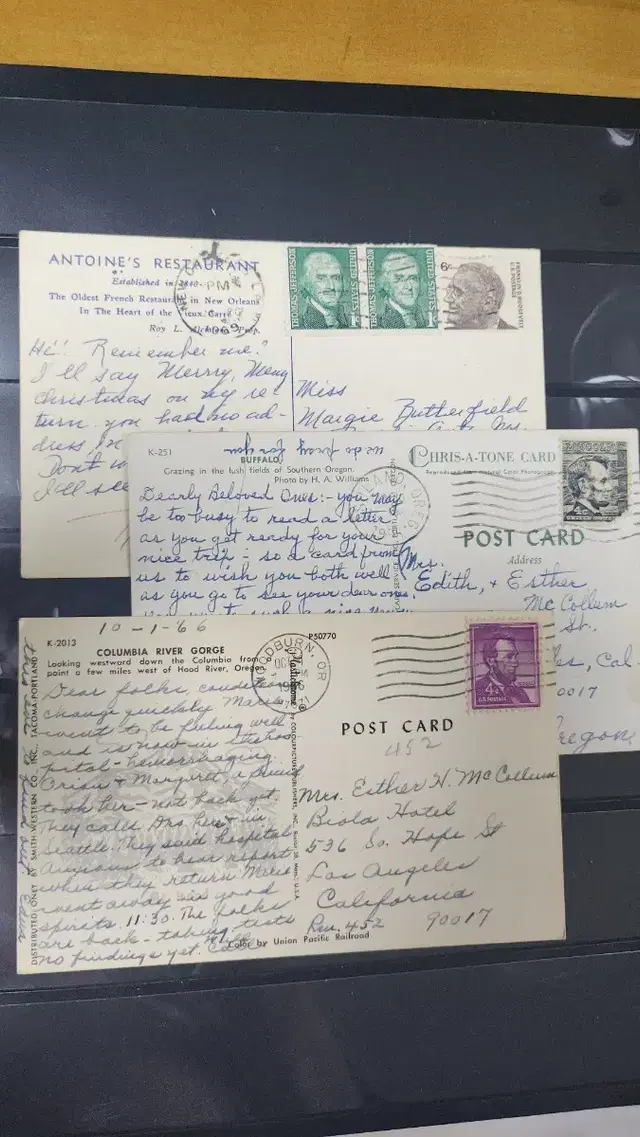 ANTOINE'S RESTAURANT
Established in 1840
The Oldest French Restaurant in New Orleans
In The Heart of the Vieux Carré
Roy L. Prop.
PM
1969
THOMAS JEFFERSON
UNITED STATES
1c
THOMAS JEFFERSON
UNITED STATES
1c
6c
FRANKLIN D. ROOSEVELT
U.S. POSTAGE
Hi! Remember me?
I'll say Merry, Merry
Christmas on my re-
turn. you had no ad-
dress in
Don't
I'll see
Miss
Margie Butterfield
K-251
BUFFALO
we do pray for you
Grazing in the lush fields of Southern Oregon.
Photo by H. A. Williams
CHRIS-A-TONE CARD
Reproduced from natural Color Photograph
POST CARD
Address
Dearly Beloved Ones:- you may
be too busy to read a letter
as you get ready for your
nice trip - so a card from
us to wish you both well
as you go to see your dear one.
Mrs.
Edith, + Esther
McCollum
St.
Cal-
0017
Oregon
4c
10-1-'66
K-2013
P50770
COLUMBIA RIVER GORGE
Looking westward down the Columbia from
point a few miles west of Hood River, Oregon
WOODBURN, OR
4c
U.S. POSTAGE
POST CARD
452
Dear folks, conditions
change quickly. Marie
went to be feeling well
and is now in the hos-
pital - hemorrhaging.
Orian + Margaret
took her - not back yet.
They called Drs. here + in
Seattle. They said hospital
Anxious to hear report
when they return
went away in good
spirits. 11:30. The folks
are back - taking tests
no findings yet.
Mrs. Esther H. McCollum
Biola Hotel
536 So. Hope St
Los Angeles
California
Rm. 452 90017
Color by Union Pacific Railroad
DISTRIBUTED ONLY BY SMITH-WESTERN CO., INC., TACOMA-PORTLAND